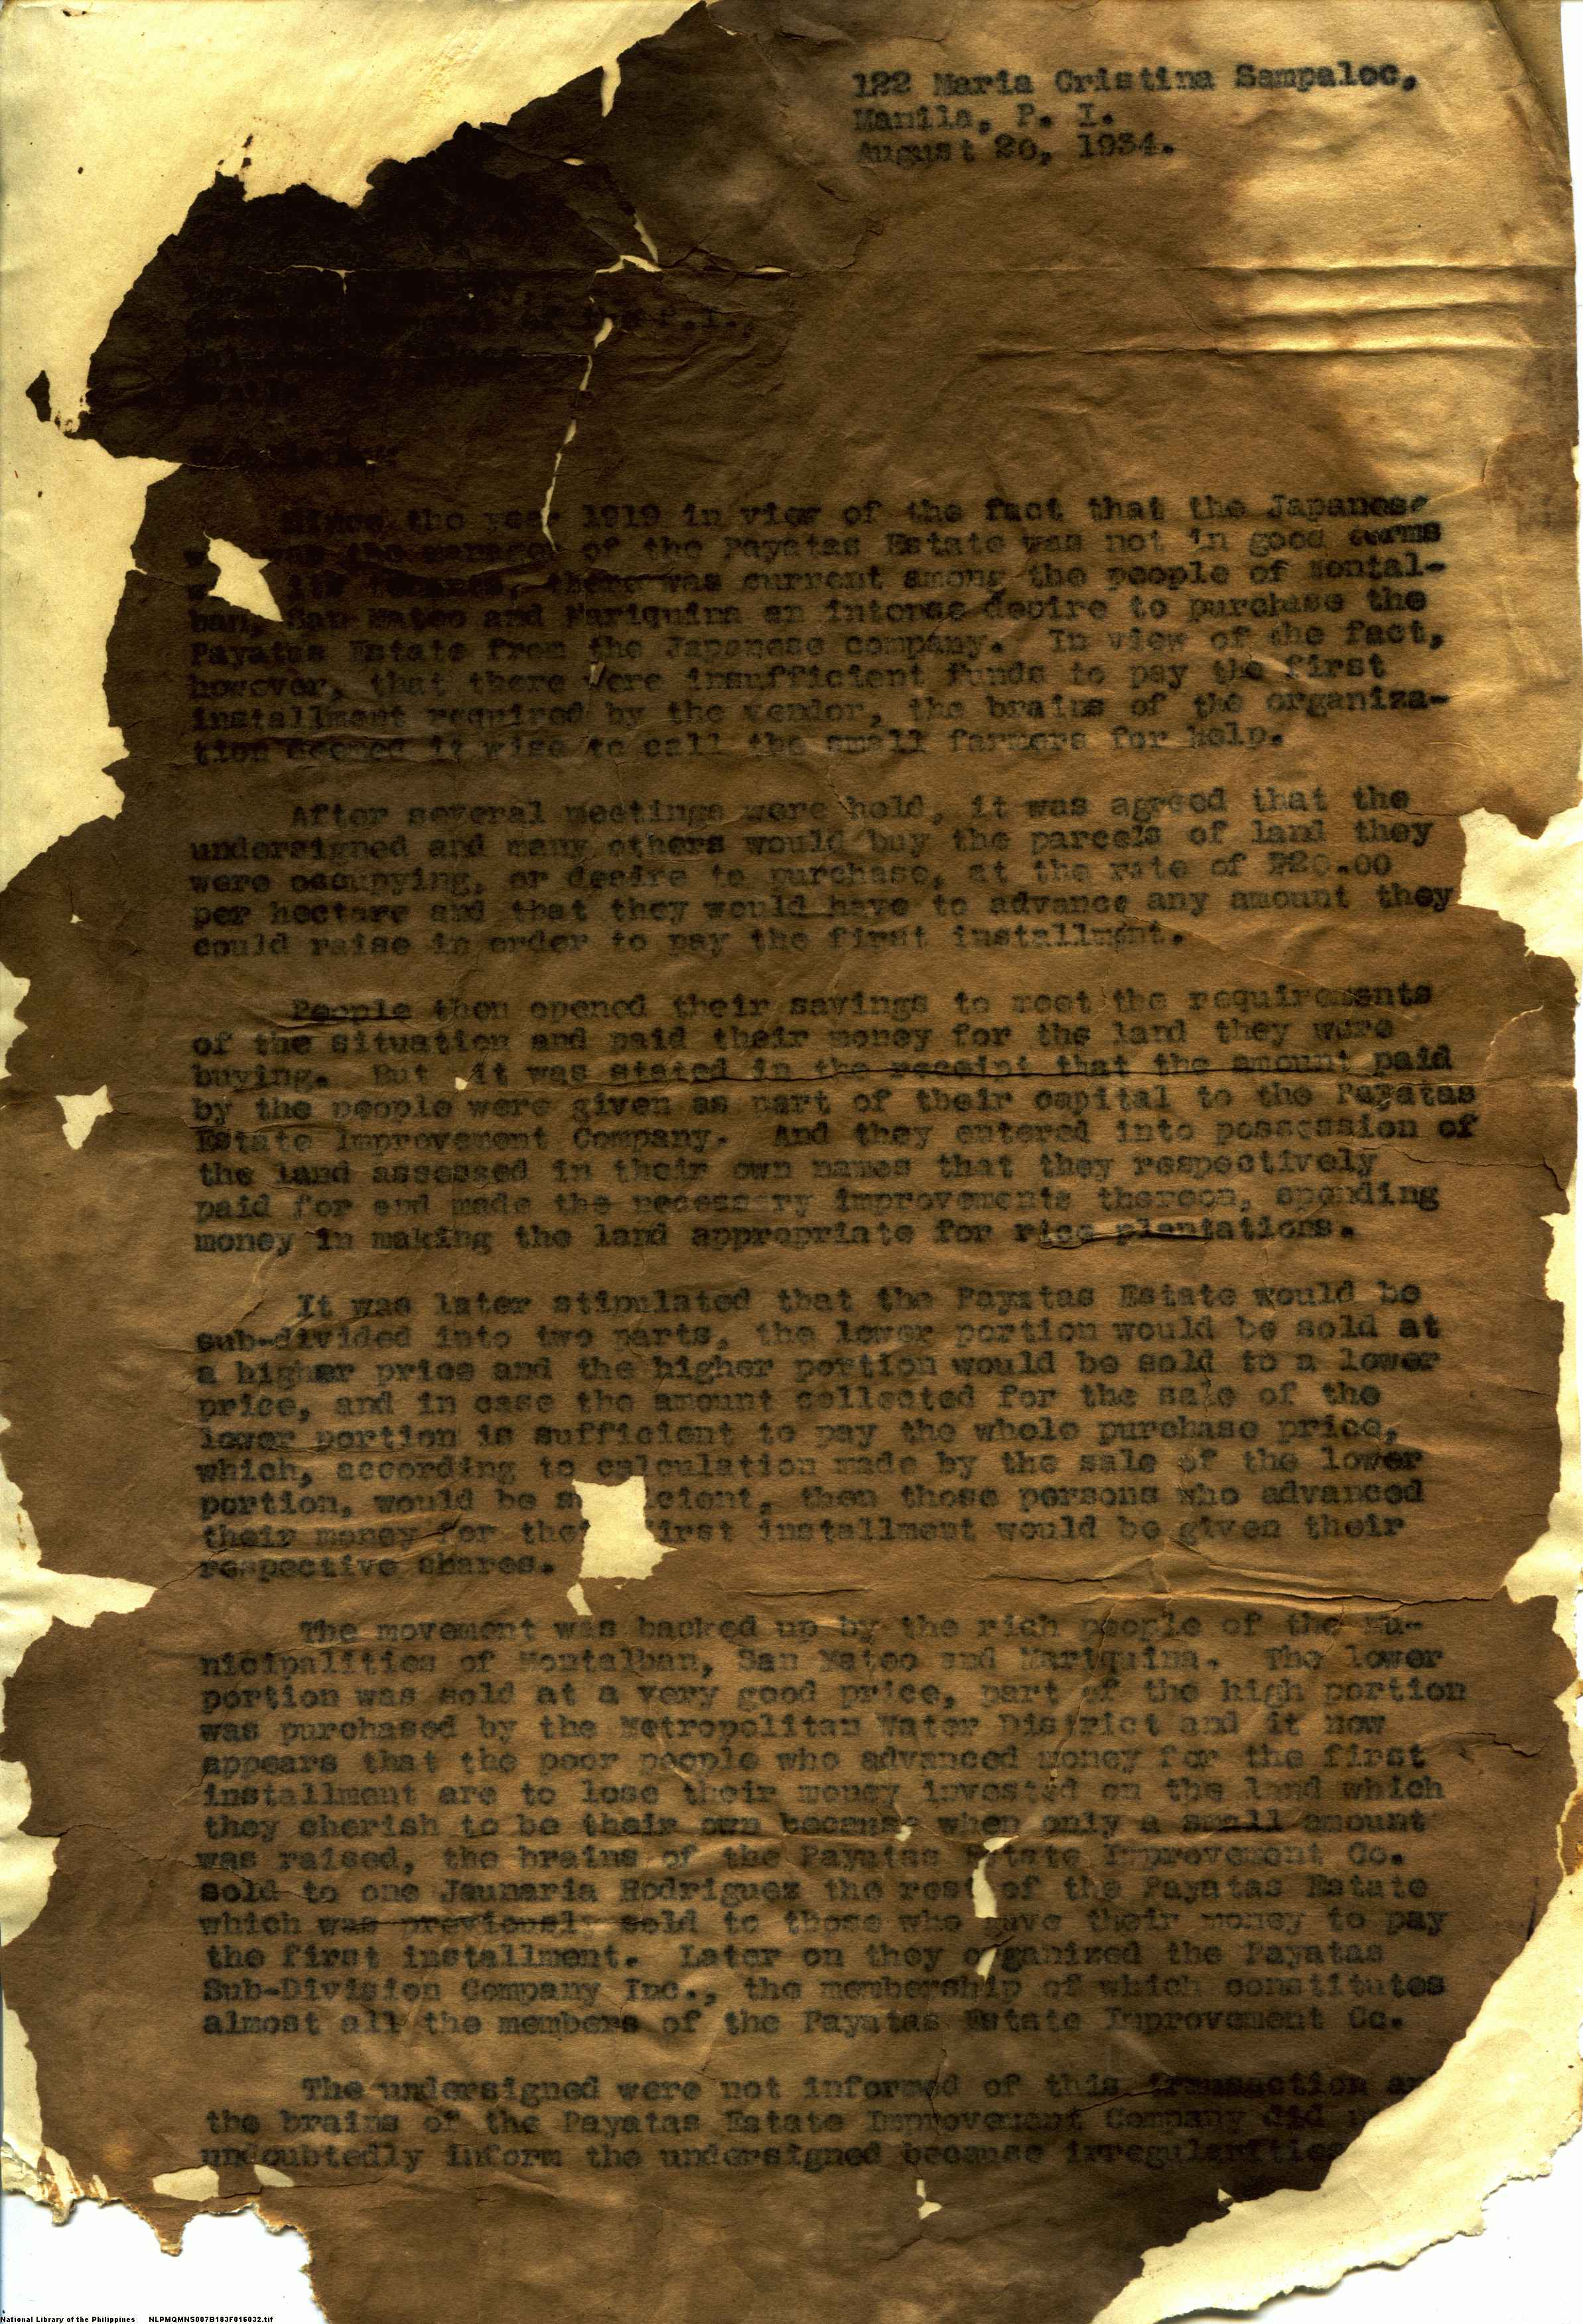 122 Maria Cristina Sampaloc,
Manila, P. I.
August 20, 1934.
of the P.I.,
Since the year 1919 in view of the fact that the Japanese
was the manager of the Payatas Estate was not in good terms
its tenants, there was current among the people of Montal-
ban, San Mateo and Mariquina an intense desire to purchase the
Payatas Estate from the Japanese company. In view of the fact,
however, that there were insufficient funds to pay the first
installment required by the vendor, the brains of the organiza-
tion deemed it wise to call the small farmers for help.
After several meetings were held, it was agreed that the
undersigned and many others would buy the parcels of land they
were occupying, or desire to purchase, at the rate of ₱20.00
per hectare and that they would have to advance any amount they
could raise in order to pay the first installment.
People then opened their savings to meet the requirements
of the situation and paid their money for the land they were
buying. But it was stated in the receipt that the amount paid
by the people were given as part of their capital to the Payatas
Estate Improvement Company. And they entered into possession of
the land assessed in their own names that they respectively
paid for and made the necessary improvements thereon, spending
money in making the land appropriate for rice plantations.
It was later stipulated that the Payatas Estate would be
sub-divided into two parts, the lower portion would be sold at
a higher price and the higher portion would be sold to a lower
price, and in case the amount collected for the sale of the
lower portion is sufficient to pay the whole purchase price,
which, according to calculation made by the sale of the lower
portion, would be s icient, then those persons who advanced
their money for the first installment would be given their
respective shares.
The movement was backed up by the rich people of the Mu-
nicipalities of Montalban, San Mateo and Mariquina. The lower
portion was sold at a very good price, part of the high portion
was purchased by the Metropolitan Water District and it now
appears that the poor people who advanced money for the first
installment are to lose their money invested on the land which
they cherish to be their own because when only a small amount
was raised, the brains of the Payatas Estate Improvement Co.
sold to one Jaunaria Rodriguez the rest of the Payatas Estate
which was previously sold to those who gave their money to pay
the first installment. Later on they organized the Payatas
Sub-Division Company Inc., the membership of which constitutes
almost all the members of the Payatas Estate Improvement Co.
The undersigned were not informed of this transaction
the brains of the Payatas Estate Improvement Company did
undoubtedly inform the undersigned because irregularities
National Library of the Philippines NLPMQMNS007B183F016032.tif